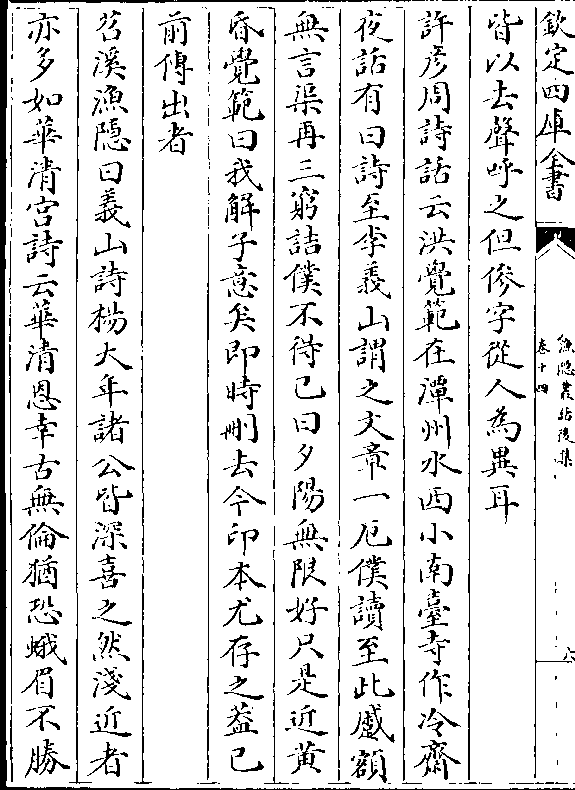 欽定四庫全書
漁隱叢話後集
卷十四
六
皆以去聲呼之但傪字從人為異耳
許彥周詩話云洪覺範在潭州水西小南臺寺作冷齋
夜話有曰詩至李義山謂之文章一厄僕讀至此蹙額
無言渠再三窮詰僕不得已曰夕陽無限好只是近黃
昏覺範曰我解子意矣即時刪去今印本尤存之葢已
前傳出者
苕溪漁隱曰義山詩楊大年諸公皆深喜之然淺近者
亦多如華清宮詩云華清恩幸古無倫猶恐蛾眉不勝